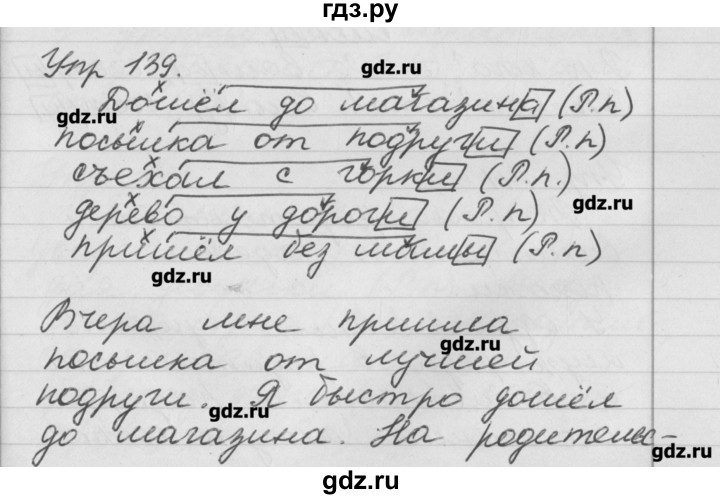 гдз.ру
Упр 139.
gdz.ru
Дошёл до магазина (Р.п)
gdz.ru
посылка от подруги (Р.п)
съехал с горки (Р.п.)
gdz.ru
дерево у дороги (Р.п)
пришёл без мамы (Р.п)
gdz.ru
Вчера мне пришла
gdz.ru
посылка от лучшей
подруги. Я быстро дошёл
gdz.ru
до магазина. На родитель-
gdz.ru
gdz.ru